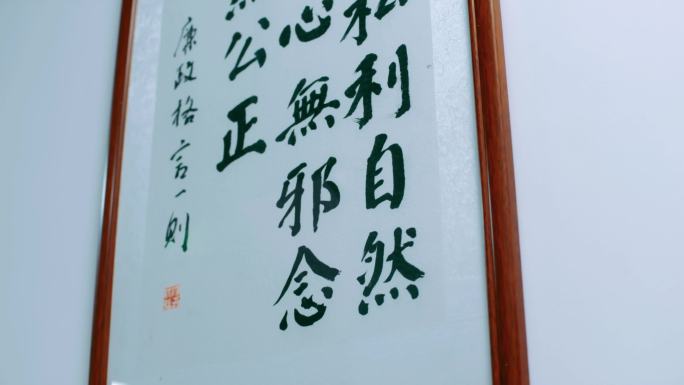 私利自然
心無邪念
公正
廉政格言一則